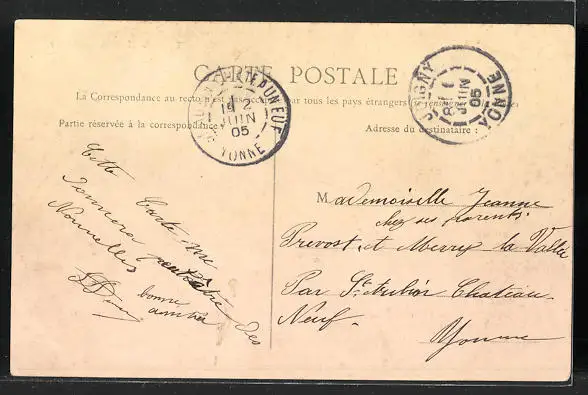 CARTE POSTALE
La Correspondance au recto n'est pas par tous les pays étrangers (se renseigner
Partie réservée à la correspondance.
Adresse du destinataire :
JUIN
05
YONNE
JOIGNY
JUIN
05
YONNE
Cette Carte me
donnera peut être des
Nouvelles
bonne
amitié
Mademoiselle Jeanne
chez ses parents.
Prevost, et Merry la Vallée
Par St Aubin Chateau-
Neuf-
Yonne